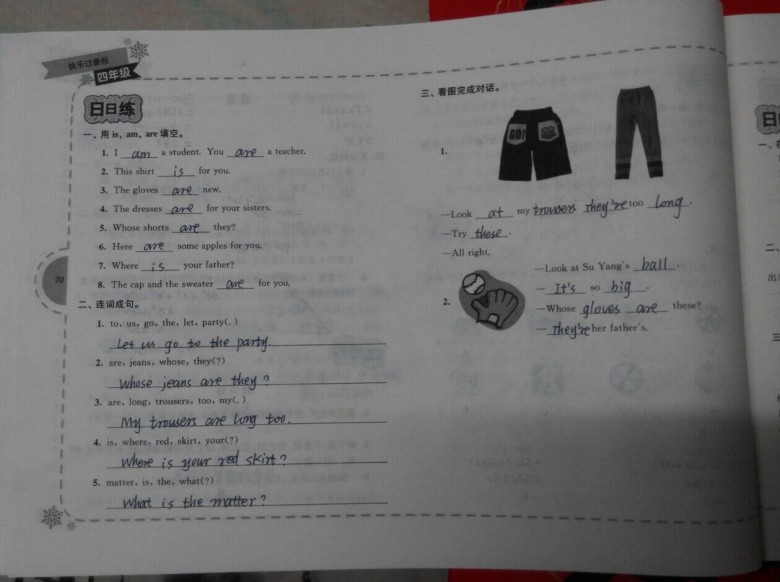 快乐过暑假
四年级
日日练
一、用 is, am, are 填空。
1. I am a student. You are a teacher.
2. This shirt is for you.
3. The gloves are new.
4. The dresses are for your sisters.
5. Whose shorts are they?
6. Here are some apples for you.
7. Where is your father?
8. The cap and the sweater are for you.
二、连词成句。
1. to, us, go, the, let, party(.)
Let us go to the party.
2. are, jeans, whose, they(?)
Whose jeans are they?
3. are, long, trousers, too, my(.)
My trousers are long too.
4. is, where, red, skirt, your(?)
Where is your red skirt?
5. matter, is, the, what(?)
What is the matter?
30
三、看图完成对话。
1.
GO!
—Look at my trousers. They're too long.
—Try these.
—All right.
2.
—Look at Su Yang's ball.
— It's so big.
—Whose gloves are these?
— They're her father's.
日
一、
二、
出
三